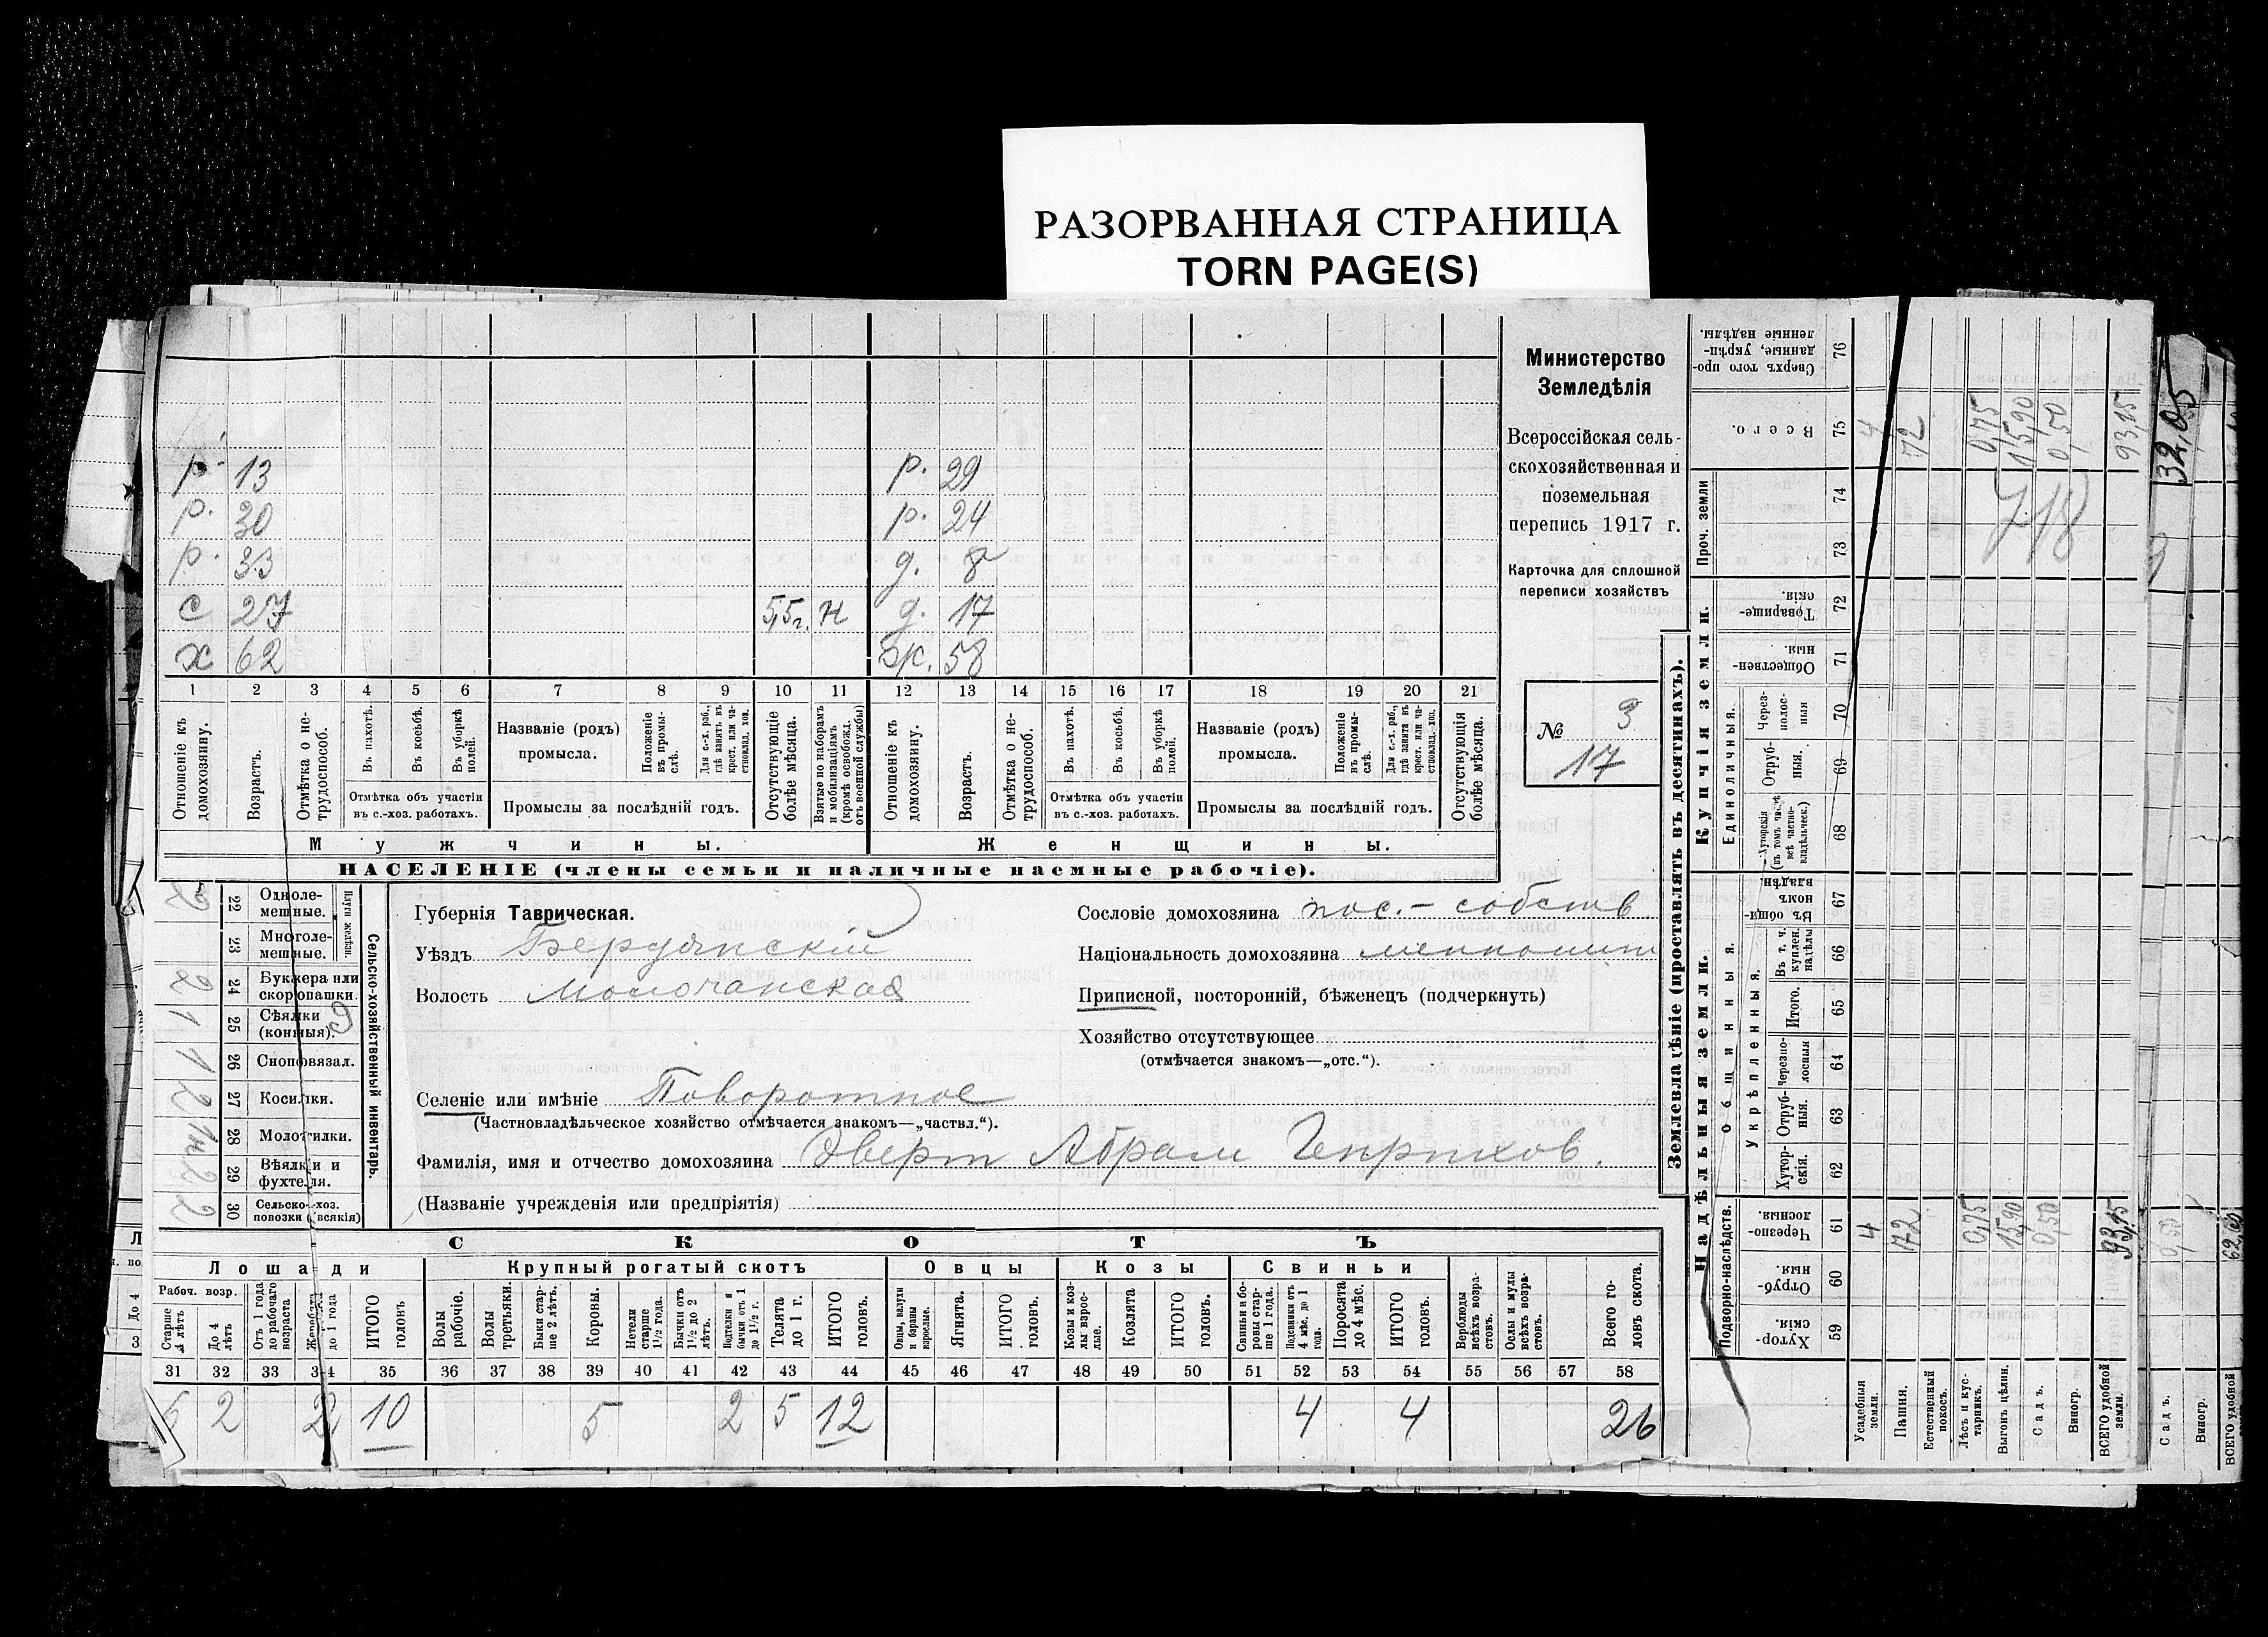 РАЗОРВАННАЯ СТРАНИЦА
TORN PAGE(S)
р. 13 р. 29
р. 30 р. 24
р. 33 д. 8
с 27 5,5 г. н д. 17
х 62 ж. 58
1 2 3 4 5 6 7 8 9 10 11 12 13 14 15 16 17 18 19 20 21
Отношеніе къ домохозяину.
Возрастъ.
Отмѣтка о нетрудоспособ.
Въ пахотѣ.
Въ косьбѣ.
Въ уборкѣ полей.
Отмѣтка объ участіи въ с.-хоз. работахъ.
Названіе (родъ) промысла.
Положеніе въ промыслѣ.
Для с.-х. раб., гдѣ занятъ въ крест. или частновлад. хоз.
Промыслы за послѣдній годъ.
Отсутствующіе болѣе мѣсяца.
Взятые по наборамъ и мобилизаціямъ (кромѣ освобожд. отъ военной службы)
Отношеніе къ домохозяину.
Возрастъ.
Отмѣтка о нетрудоспособ.
Въ пахотѣ.
Въ косьбѣ.
Въ уборкѣ полей.
Отмѣтка объ участіи въ с.-хоз. работахъ.
Названіе (родъ) промысла.
Положеніе въ промыслѣ.
Для с.-х. раб., гдѣ занята въ крест. или частновлад. хоз.
Промыслы за послѣдній годъ.
Отсутствующія болѣе мѣсяца.
Мужчины. Женщины.
НАСЕЛЕНІЕ (члены семьи и наличные наемные рабочіе).
Министерство
Земледѣлія
Всероссійская сель-
скохозяйственная и
поземельная
перепись 1917 г.
Карточка для сплошной
переписи хозяйствъ
№ 3
17
Губернія Таврическая.
Уѣздъ Бердянскій
Волость Молочанская
Селеніе или имѣніе Поворотное
(Частновладѣльческое хозяйство отмѣчается знакомъ—„частвл.“).
Фамилія, имя и отчество домохозяина Эверт Абрам Генрихов.
(Названіе учрежденія или предпріятія)
Сословіе домохозяина пос.- собств.
Національность домохозяина меннонит
Приписной, посторонній, бѣженецъ (подчеркнуть)
Хозяйство отсутствующее
(отмѣчается знакомъ—„отс.“).
Сельско-хозяйственный инвентарь.
Плуги желѣзн.
22 Одноле-мешные.
23 Многоле-мешные.
2 24 Буккера или скоропашки.
1 25 Сѣялки (конныя).
1 26 Сноповязал.
2 27 Косилки.
28 Молотилки.
2 29 Вѣялки и фухтеля.
2 30 Сельско-хоз. повозки (всякія)
СКОТЪ
Лошади Крупный рогатый скотъ Овцы Козы Свиньи
Рабоч. возр.
Старше 4 лѣтъ
До 4 лѣтъ
Отъ 1 года до рабочаго возраста
Жеребята до 1 года
ИТОГО головъ
Волы рабочіе.
Волы третьяки.
Быки стар-ше 2 лѣтъ.
Коровы.
Нетели старше 1½ года.
Бычки отъ 1½ до 2 лѣтъ.
Подтелки и бычки отъ 1 до 1½ г.
Телята до 1 г.
ИТОГО головъ.
Овцы, валухи и бараны взрослые.
Ягнята.
ИТОГО головъ.
Козы и коз-лы взрос-лые.
Козлята
ИТОГО головъ.
Свиньи и бо-ровы стар-ше 1 года.
Подсвинки отъ 4 мѣс. до 1 года.
Поросята до 4 мѣс.
ИТОГО головъ.
Верблюды всѣхъ возра-стовъ.
Ослы и мулы всѣхъ возра-стовъ.
Всего го-ловъ скота.
31 32 33 34 35 36 37 38 39 40 41 42 43 44 45 46 47 48 49 50 51 52 53 54 55 56 57 58
2 2 10 5 2 5 12 4 4 26
Землевладѣніе (проставлять въ десятинахъ).
Надѣльныя земли. Купчія земли.
Подворно-наслѣдств. общинныя Укрѣпленныя. Единоличныя.
Хутор-скія. 59
Отруб-ныя. 60
Черезпо-лосныя. 61
Хутор-скія. 62
Отруб-ныя. 63
Черезпо-лосныя 64
Итого. 65
Въ т. ч. куплен. надѣлы 66
Въ общи-номъ владѣн. 67
Хуторскія (въ томъ числѣ всѣ частно-владѣльческ.) 68
Отруб-ныя. 69
Через-полос-ныя 70
Обществен-ныя. 71
Товарище-скія. 72
Проч. земли 73 74
Всего. 75
Сверхъ того про-данные, укрѣп-ленные надѣлы. 76
Усадебныя земли. 4 4
Пашня. 72 72
Естественный покосъ.
Лѣсъ и кус-тарникъ. 0,75 0,75
Выгонъ цѣлин. 15,90 15,90
Садъ. 0,50 0,50
Виногр.
ВСЕГО удобной земли. 93,15 93,15
32,05
Садъ.
Виногр.
ВСЕГО удобной